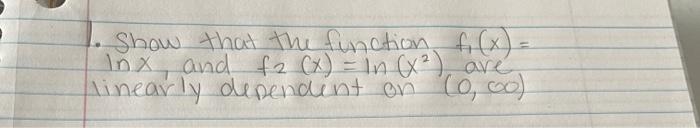 1. Show that the function f₁(x) =
lnx, and f2 (x) = ln (x²) are
linearly dependent on (0, ∞)